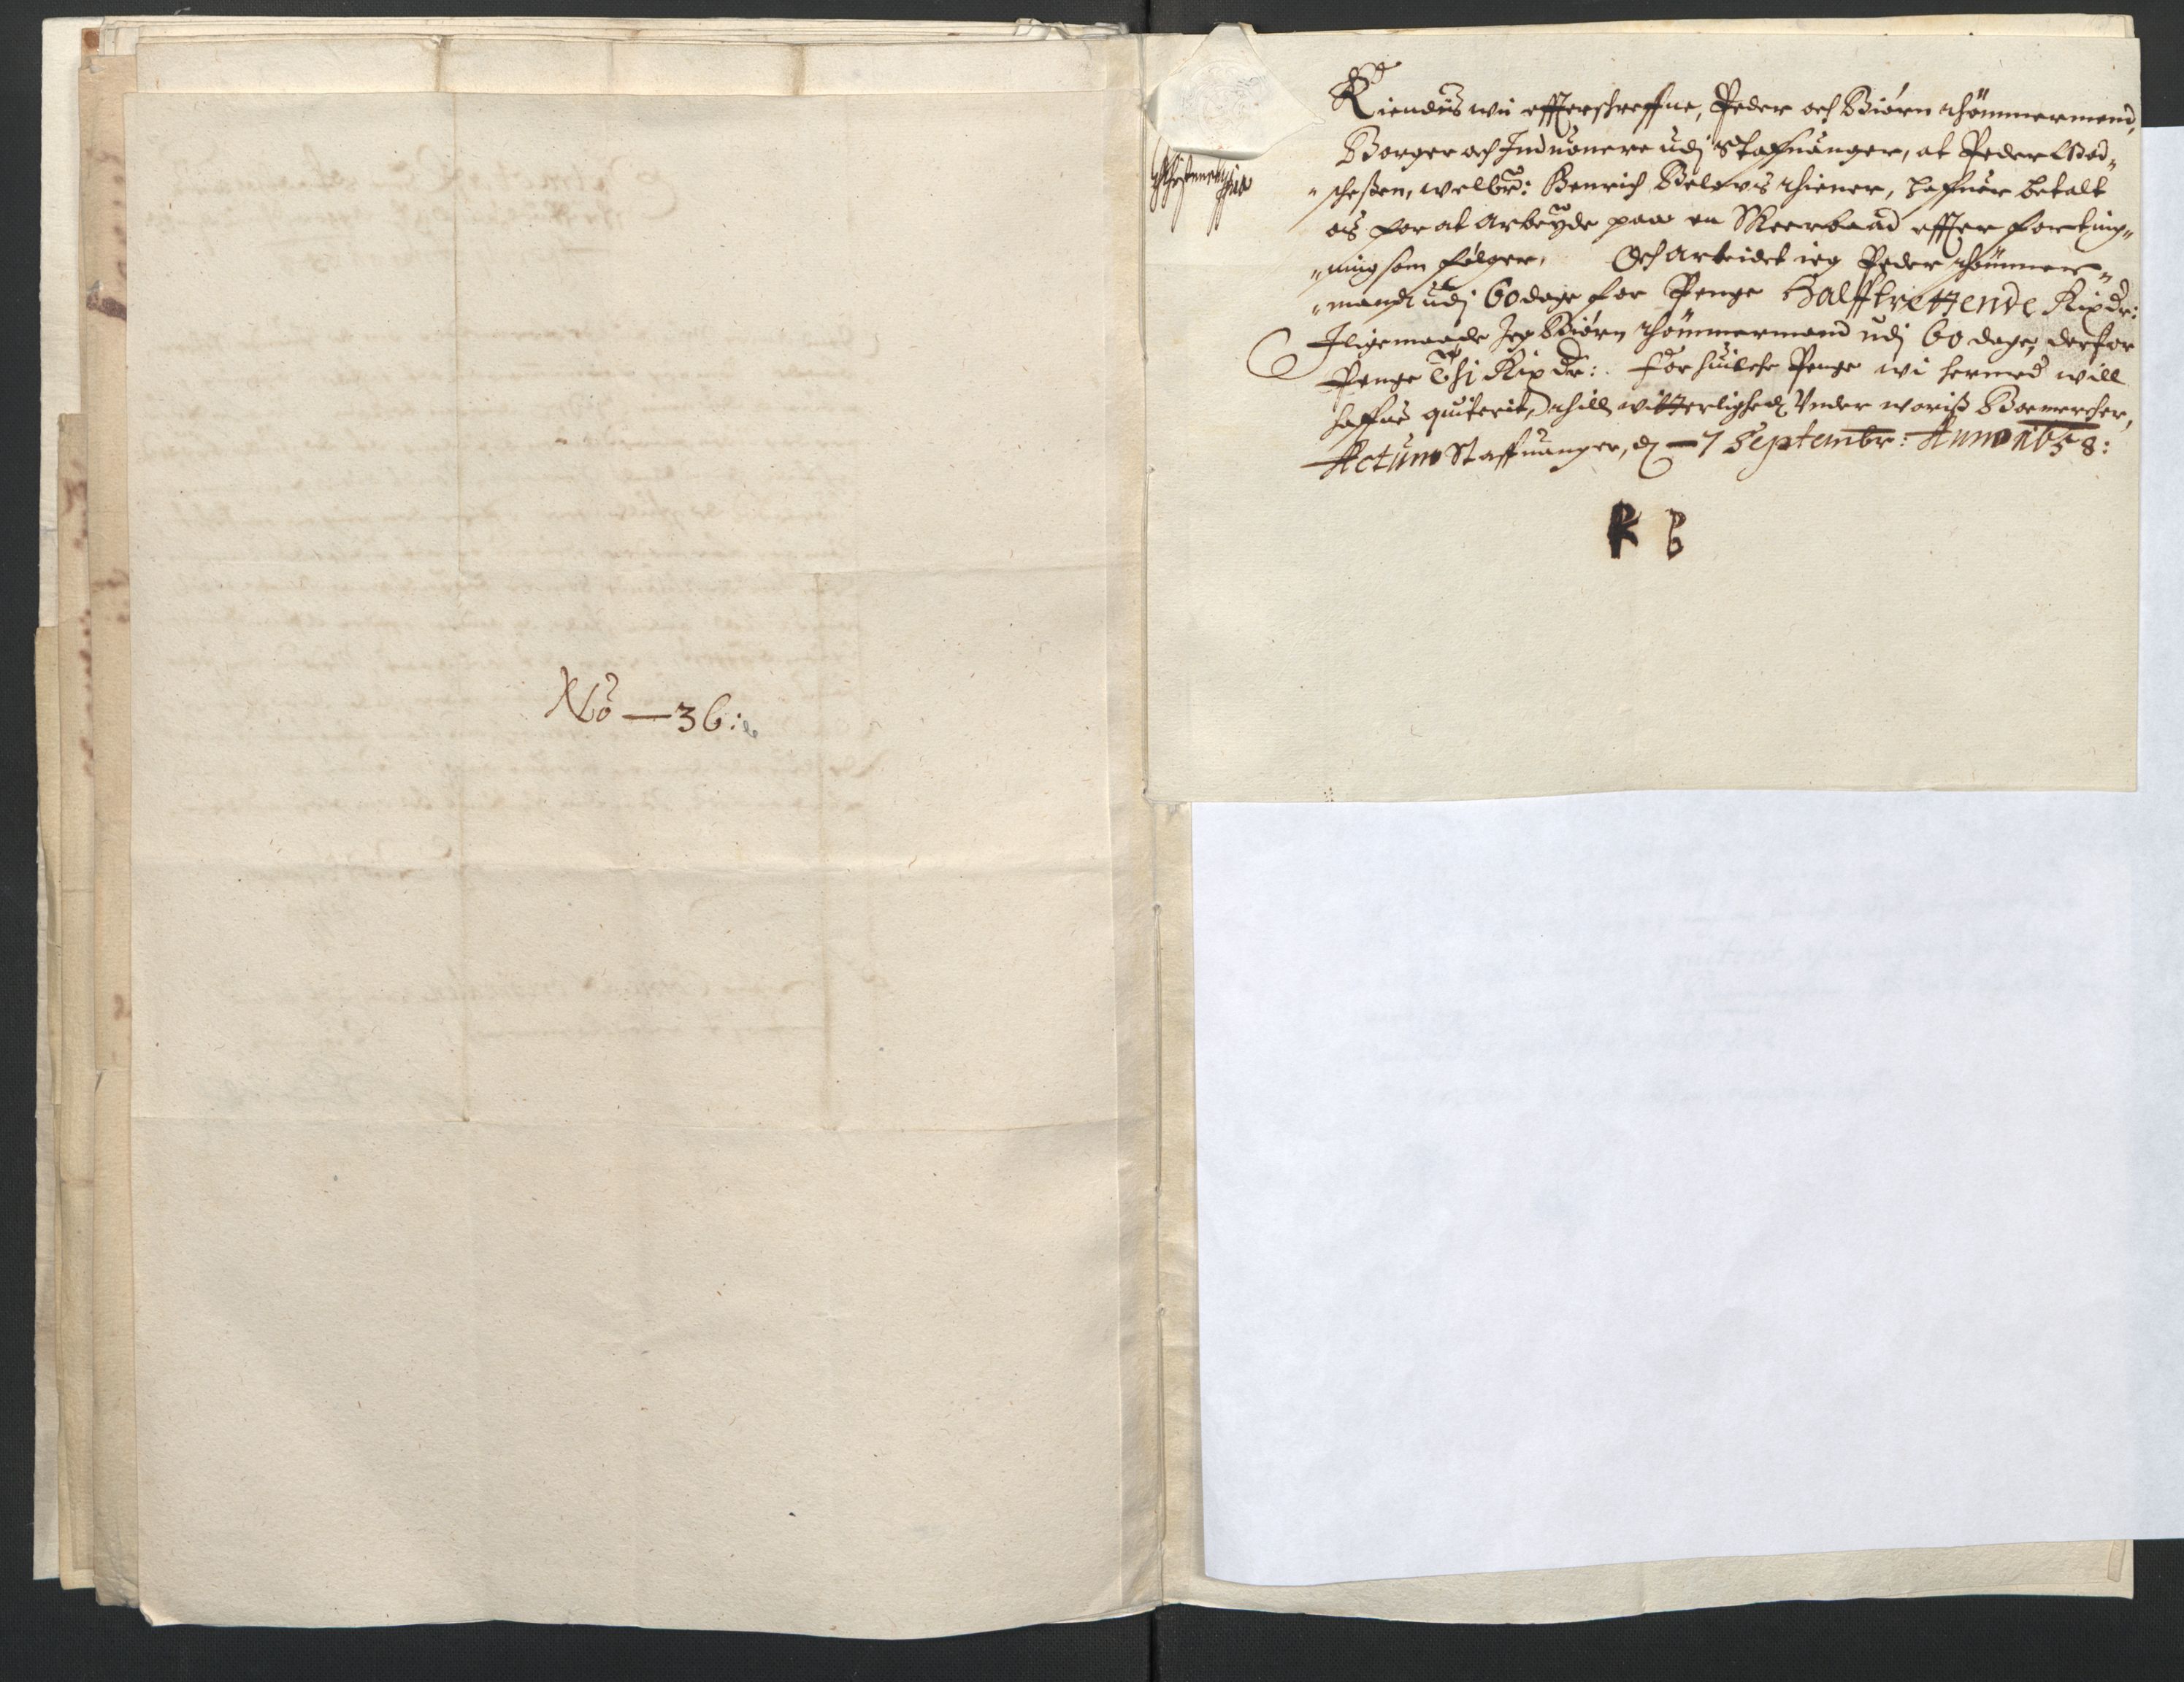 No — 36:
Kiendis wii effterschreffne, Peder och Biörn thömmermend,
Borger och Induonere udj Staffuanger, at Peder Mad„
„schessen, welbr: Henrich Belovs thiener, haffuer betalt
os for at Arbeyde paa en Skeerbaad effter forting„
„ning som følger, Och Arbeidet ieg Peder thömmer„
„mand udj 60 dage for Penge Halfftrettende Rixdr:
Iligemaade Jeg Biörn thömmermand udj 60 dage, derfor
Penge Thj Rixdr: For huilche Penge wi hermed will
haffue quiterit, thill witterlighed Under woris Boemercher,
Actum Staffuanger, dj — 7 Septembr: Anno 1658:
P B